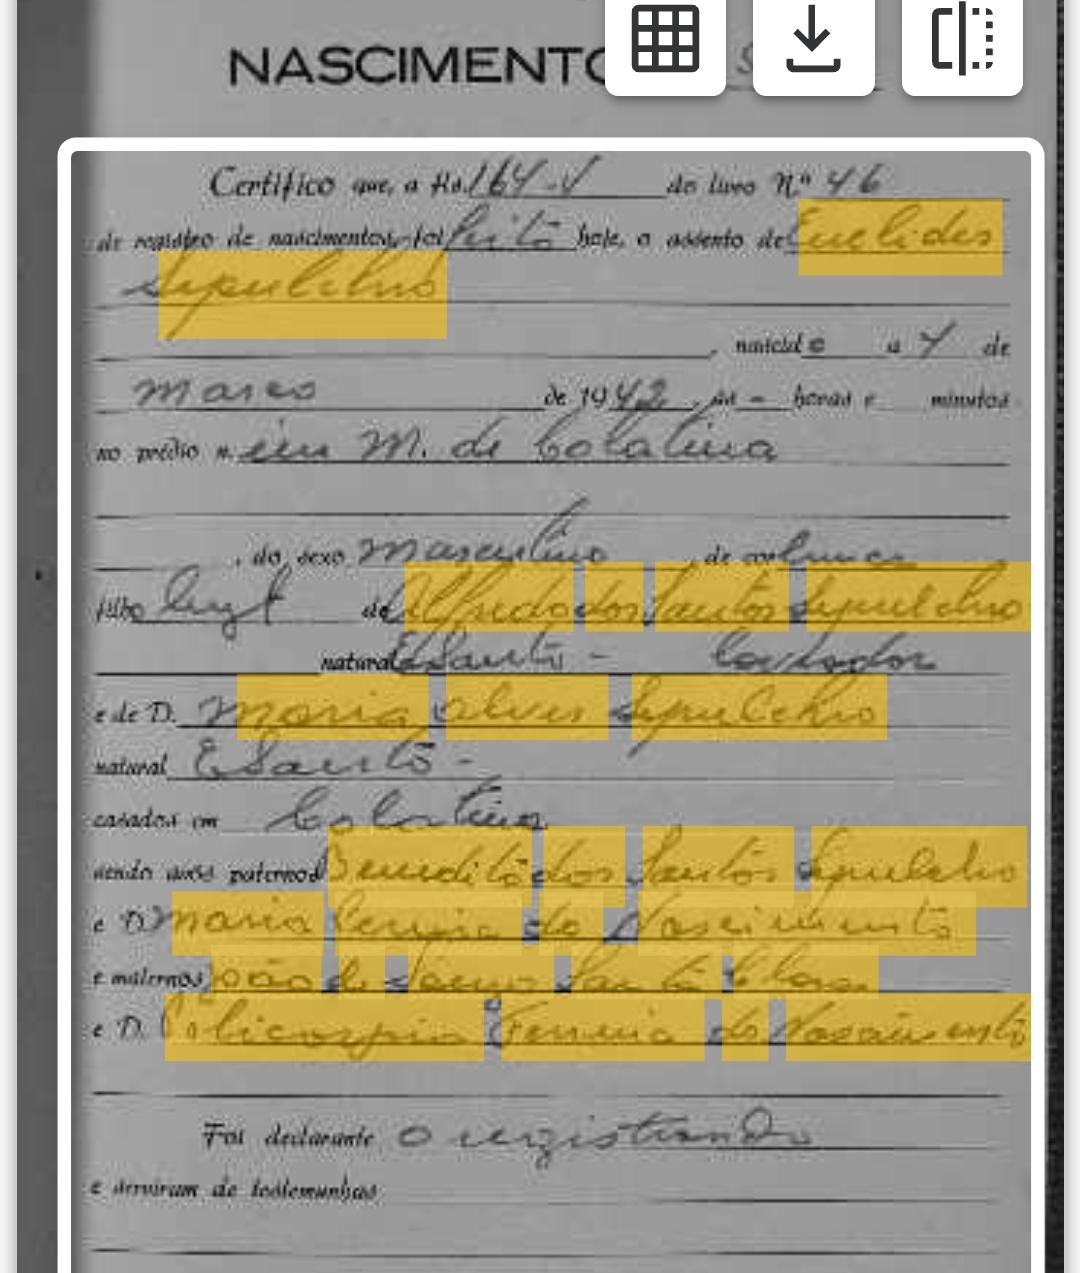 NASCIMENTO
Certifico que, a fls. 164-V do livro N.º 46
de registro de nascimentos, foi feito hoje, o assento de Euclides
Sepulchro
, nascido a 4 de
março de 1942, às - horas e minutos
no prédio n. em M. de Colatina
, do sexo masculino de cor branca
filho legt de Alfredo dos Santos Sepulchro
natural ESanto - lavrador
e de D. Maria Alves Sepulchro
natural ESanto -
casados em Colatina
sendo avós paternos Benedito dos Santos Sepulchro
e D. Maria Pereira do Nascimento
e maternos João de Santa Clara
e D. Policarpia Ferreira do Nascimento
Foi declarante o registrando
e serviram de testemunhas